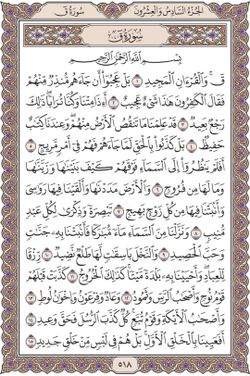 الجزء السادس والعشرون
سورة ق
سُورَةُ قٓ
بِسْمِ ٱللَّهِ ٱلرَّحْمَٰنِ ٱلرَّحِيمِ
قٓۚ وَٱلْقُرْءَانِ ٱلْمَجِيدِ ١ بَلْ عَجِبُوٓا۟ أَن جَآءَهُم مُّنذِرٌ مِّنْهُمْ
فَقَالَ ٱلْكَٰفِرُونَ هَٰذَا شَىْءٌ عَجِيبٌ ٢ أَءِذَا مِتْنَا وَكُنَّا تُرَابًاۖ ذَٰلِكَ
رَجْعٌۢ بَعِيدٌ ٣ قَدْ عَلِمْنَا مَا تَنقُصُ ٱلْأَرْضُ مِنْهُمْۖ وَعِندَنَا كِتَٰبٌ
حَفِيظٌۢ ٤ بَلْ كَذَّبُوا۟ بِٱلْحَقِّ لَمَّا جَآءَهُمْ فَهُمْ فِىٓ أَمْرٍ مَّرِيجٍ ٥
أَفَلَمْ يَنظُرُوٓا۟ إِلَى ٱلسَّمَآءِ فَوْقَهُمْ كَيْفَ بَنَيْنَٰهَا وَزَيَّنَّٰهَا
وَمَا لَهَا مِن فُرُوجٍ ٦ وَٱلْأَرْضَ مَدَدْنَٰهَا وَأَلْقَيْنَا فِيهَا رَوَٰسِىَ
وَأَنۢبَتْنَا فِيهَا مِن كُلِّ زَوْجٍۭ بَهِيجٍ ٧ تَبْصِرَةً وَذِكْرَىٰ لِكُلِّ عَبْدٍ
مُّنِيبٍ ٨ وَنَزَّلْنَا مِنَ ٱلسَّمَآءِ مَآءً مُّبَٰرَكًا فَأَنۢبَتْنَا بِهِۦ جَنَّٰتٍ
وَحَبَّ ٱلْحَصِيدِ ٩ وَٱلنَّخْلَ بَاسِقَٰتٍ لَّهَا طَلْعٌ نَّضِيدٌ ١٠ رِّزْقًا
لِّلْعِبَادِۖ وَأَحْيَيْنَا بِهِۦ بَلْدَةً مَّيْتًاۚ كَذَٰلِكَ ٱلْخُرُوجُ ١١ كَذَّبَتْ قَبْلَهُمْ
قَوْمُ نُوحٍ وَأَصْحَٰبُ ٱلرَّسِّ وَثَمُودُ ١٢ وَعَادٌ وَفِرْعَوْنُ وَإِخْوَٰنُ لُوطٍ ١٣
وَأَصْحَٰبُ ٱلْأَيْكَةِ وَقَوْمُ تُبَّعٍۚ كُلٌّ كَذَّبَ ٱلرُّسُلَ فَحَقَّ وَعِيدِ ١٤
أَفَعَيِينَا بِٱلْخَلْقِ ٱلْأَوَّلِۚ بَلْ هُمْ فِى لَبْسٍ مِّنْ خَلْقٍ جَدِيدٍ ١٥
٥١٨